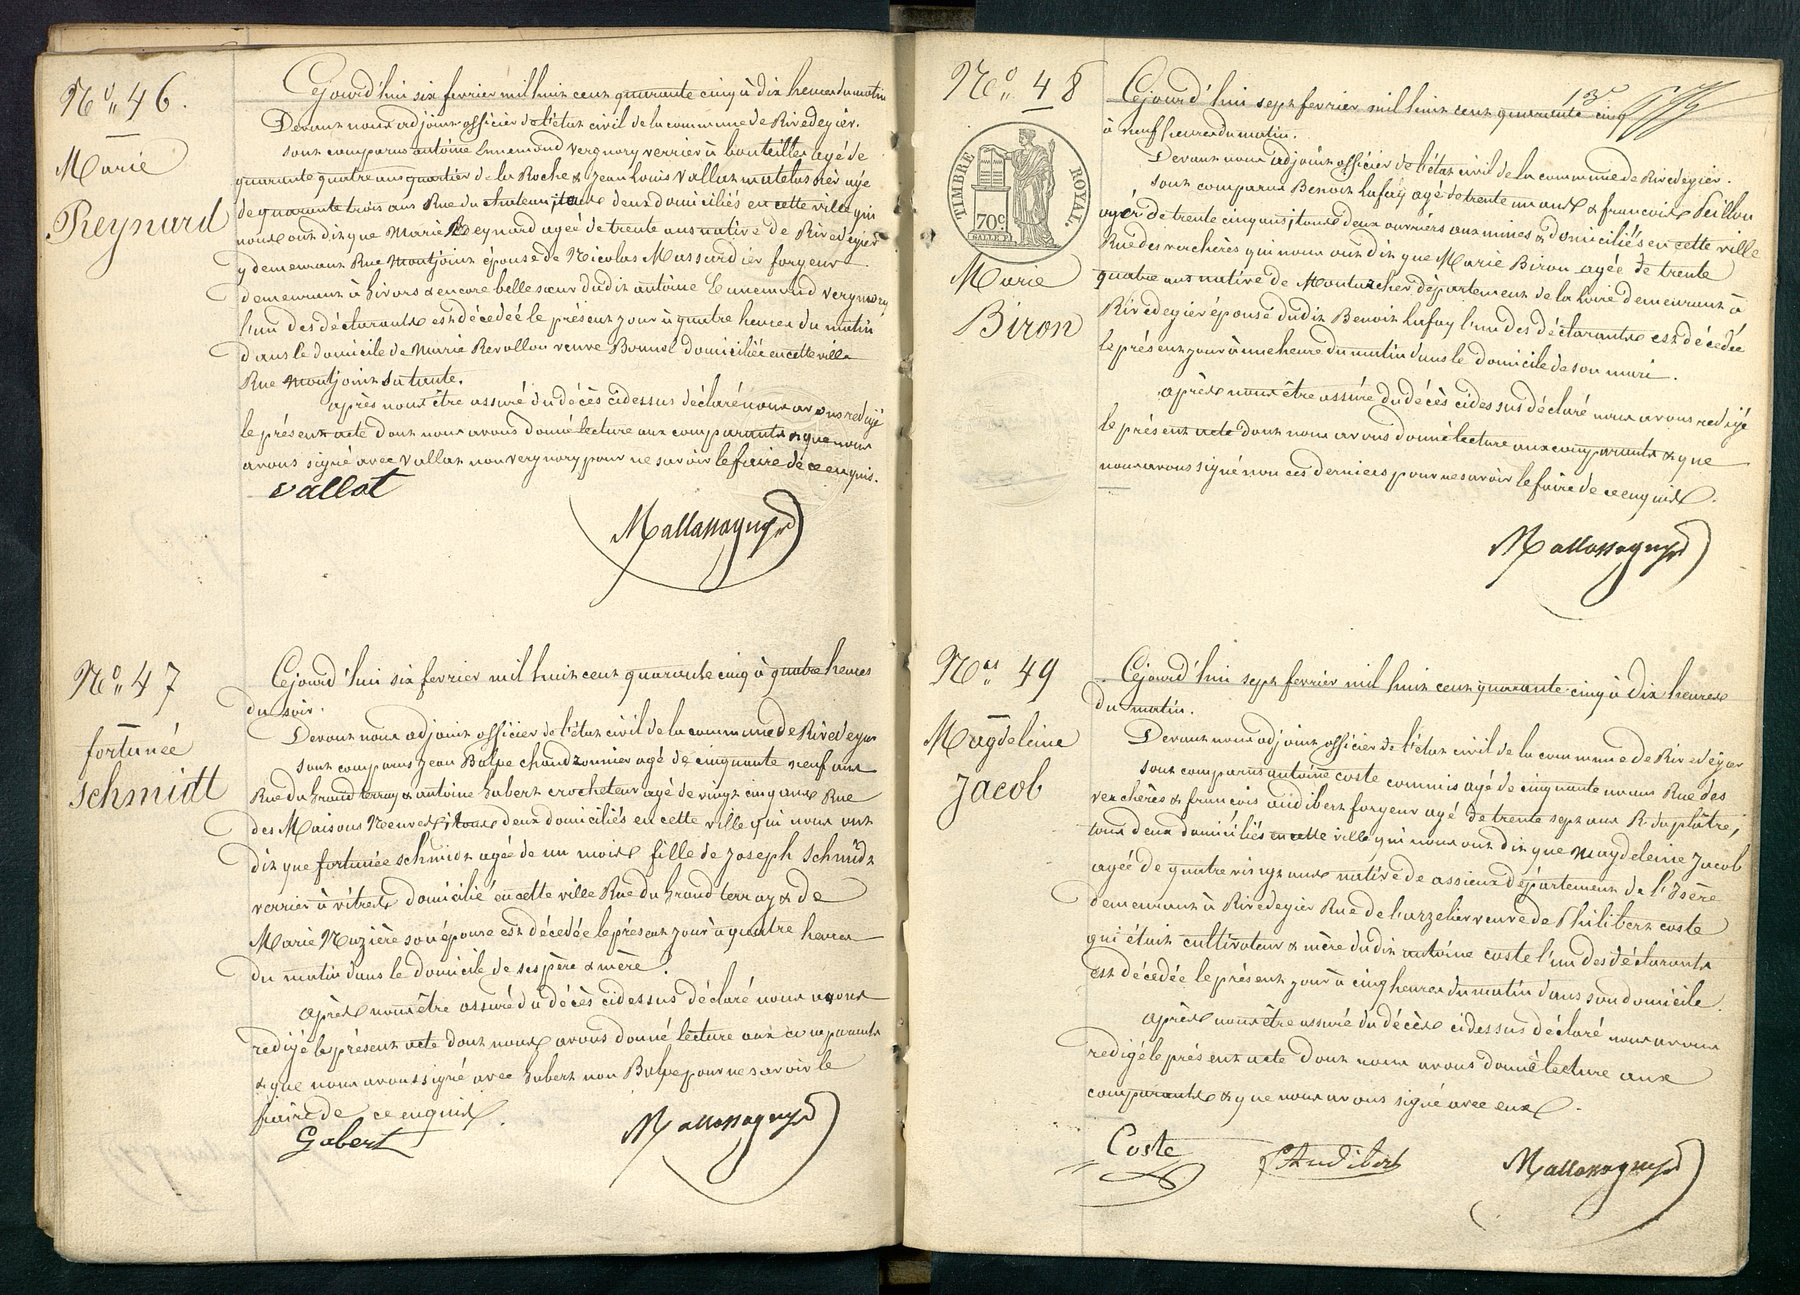 No 46.
Marie
Reynard
Cejourd'hui six fevrier mil huit cent quarante cinq à dix heures du matin
Devant nous adjoint officier de l'état civil de la commune de Rivedegier.
sont comparus antoine Ennemond Vergnory verrier à bouteilles agé de
quarante quatre ans quartier de la Roche & Jean Louis Vallat matelassier agé
de quarante trois ans Rue du chateau, tous deux domiciliés en cette ville qui
nous ont dit que Marie Reynard agée de trente ans native de Rivedegier
y demeurant Rue Montjoint épouse de Nicolas Massardier forgeur
demeurant à Givors & encore belle sœur dudit antoine Ennemond vergnory
l'un des déclarants est décedée le présent jour à quatre heures du matin
dans le domicile de Marie Revollon veuve Bonnel domiciliée en cette ville
Rue Montjoint sa tante.
après nous être assuré du décès cidessus déclaré nous avons redigé
le présent acte dont nous avons donné lecture aux comparants & que nous
avons signé avec Vallat non vergnory pour ne savoir le faire de ce enquis.
Vallat
Mallassagny
No 47
fortunée
Schmidt
Cejourd'hui six fevrier mil huit cent quarante cinq à quatre heures
du soir.
Devant nous adjoint officier de l'état civil de la commune de Rivedegier
sont comparus Jean Balpe chaudronnier agé de cinquante neuf ans
Rue du Grand terray & antoine Gabert crocheteur agé de vingt cinq ans Rue
des Maisons Neuves, tous deux domiciliés en cette ville qui nous ont
dit que fortunée schmidt agée de un mois fille de Joseph Schmidt
verrier à vitres domicilié en cette ville Rue du Grand terray & de
Marie Mazière son épouse est décedée le présent jour à quatre heures
du matin dans le domicile de ses père & mère.
après nous être assuré du décès cidessus déclaré nous avons
redigé le présent acte dont nous avons donné lecture aux comparants
& que nous avons signé avec Gabert non Balpe pour ne savoir le
faire de ce enquis.
Gabert
Mallassagny
No 48
TIMBRE ROYAL.
70c.
Marie
Biron
13e
Cejourd'hui sept fevrier mil huit cent quarante cinq
à neuf heures du matin.
Devant nous adjoint officier de l'état civil de la commune de Rivedegier.
sont comparus Benoit Lafay agé de trente un ans & francois Peillon
agé de trente cinq ans, tous deux ouvriers aux mines & domiciliés en cette ville
Rue des verchères qui nous ont dit que Marie Biron agée de trente
quatre ans native de Montarcher département de la Loire demeurant à
Rivedegier épouse dudit Benoit Lafay l'un des déclarants est décedée
le présent jour à une heure du matin dans le domicile de son mari.
après nous être assuré du décès cidessus déclaré nous avons redigé
le présent acte dont nous avons donné lecture aux comparants & que
nous avons signé non ces derniers pour ne savoir le faire de ce enquis.
Mallassagny
No 49
Magdeleine
Jacob
Cejourd'hui sept fevrier mil huit cent quarante cinq à dix heures
du matin.
Devant nous adjoint officier de l'état civil de la commune de Rivedegier
sont comparus antoine coste commis agé de cinquante un ans Rue des
verchères & francois audibert forgeur agé de trente sept ans R. du plâtre,
tous deux domiciliés en cette ville qui nous ont dit que Magdeleine Jacob
agée de quatre vingt ans native de assieux département de l'Isère
demeurant à Rivedegier Rue de l'arzelier veuve de Philibert coste
qui était cultivateur & mère dudit antoine coste l'un des déclarants
est décedée le présent jour à cinq heures du matin dans son domicile.
après nous être assuré du décès cidessus déclaré nous avons
redigé le présent acte dont nous avons donné lecture aux
comparants & que nous avons signé avec eux.
Coste
Audibert
Mallassagny